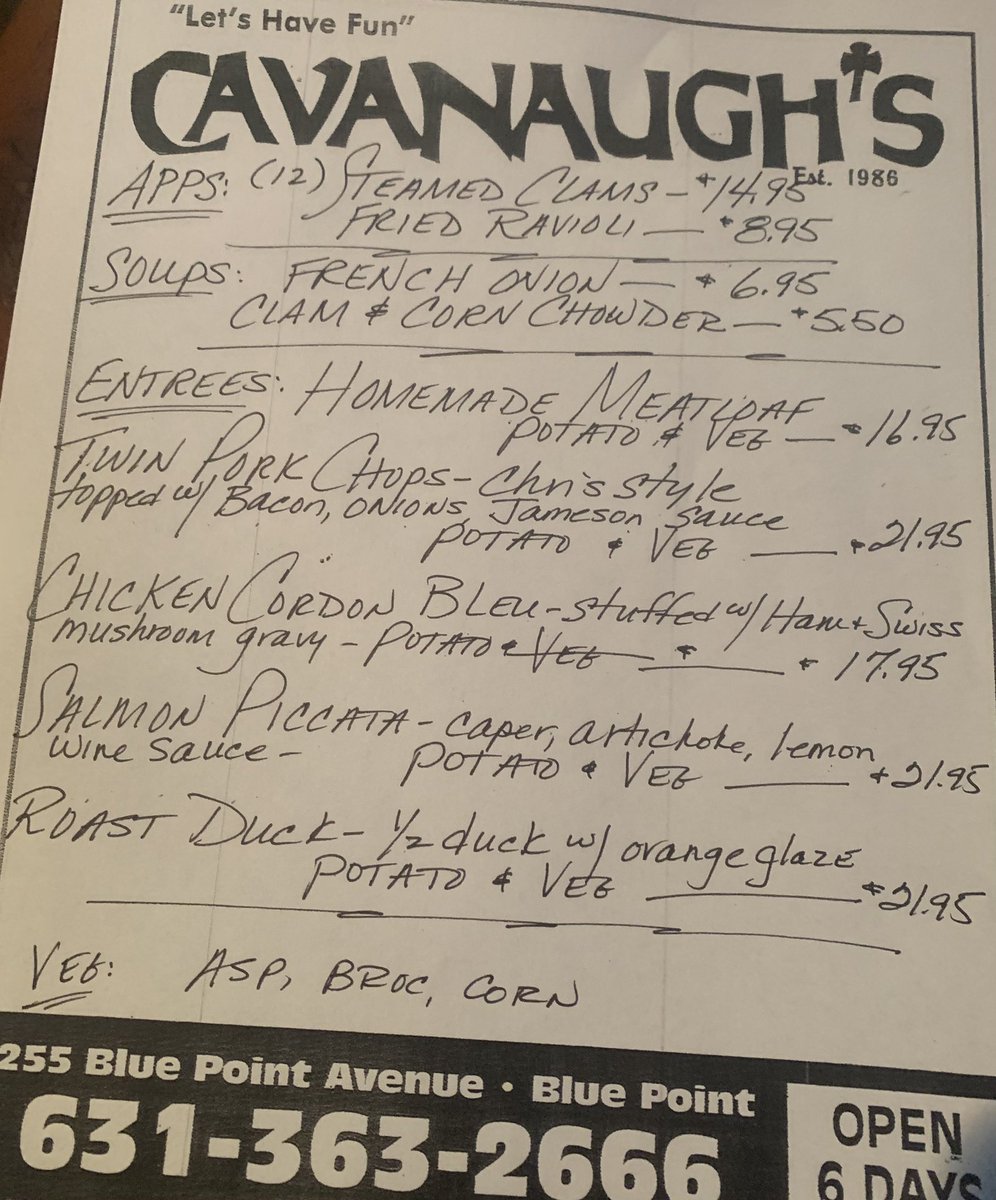 "Let's Have Fun"
CAVANAUGH'S
Est. 1986
APPS: (12) STEAMED CLAMS — $14.95
FRIED RAVIOLI — $8.95
SOUPS: FRENCH ONION — $6.95
CLAM & CORN CHOWDER — $5.50
ENTREES: HOMEMADE MEATLOAF
POTATO & VEG — $16.95
TWIN PORK CHOPS - Chris style
topped w/ Bacon, onions, Jameson sauce
POTATO & VEG — $21.95
CHICKEN CORDON BLEU - stuffed w/ Ham + Swiss
mushroom gravy - POTATO & VEG — $ — $17.95
SALMON PICCATA - caper, artichoke, lemon
wine sauce - POTATO & VEG — $21.95
ROAST DUCK - 1/2 duck w/ orange glaze
POTATO & VEG — $21.95
VEG: ASP, BROC, CORN
255 Blue Point Avenue • Blue Point
631-363-2666
OPEN
6 DAYS